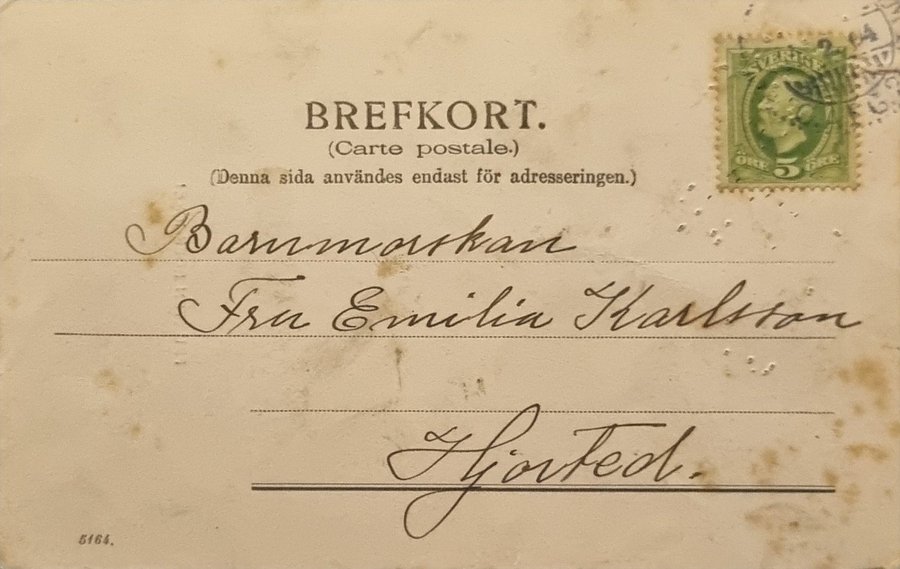 BREFKORT.
(Carte postale.)
(Denna sida användes endast för adresseringen.)
SVERIGE
ÖRE 5 ÖRE
Barnmorskan
Fru Emilia Karlsson
Hjorted.
5164.